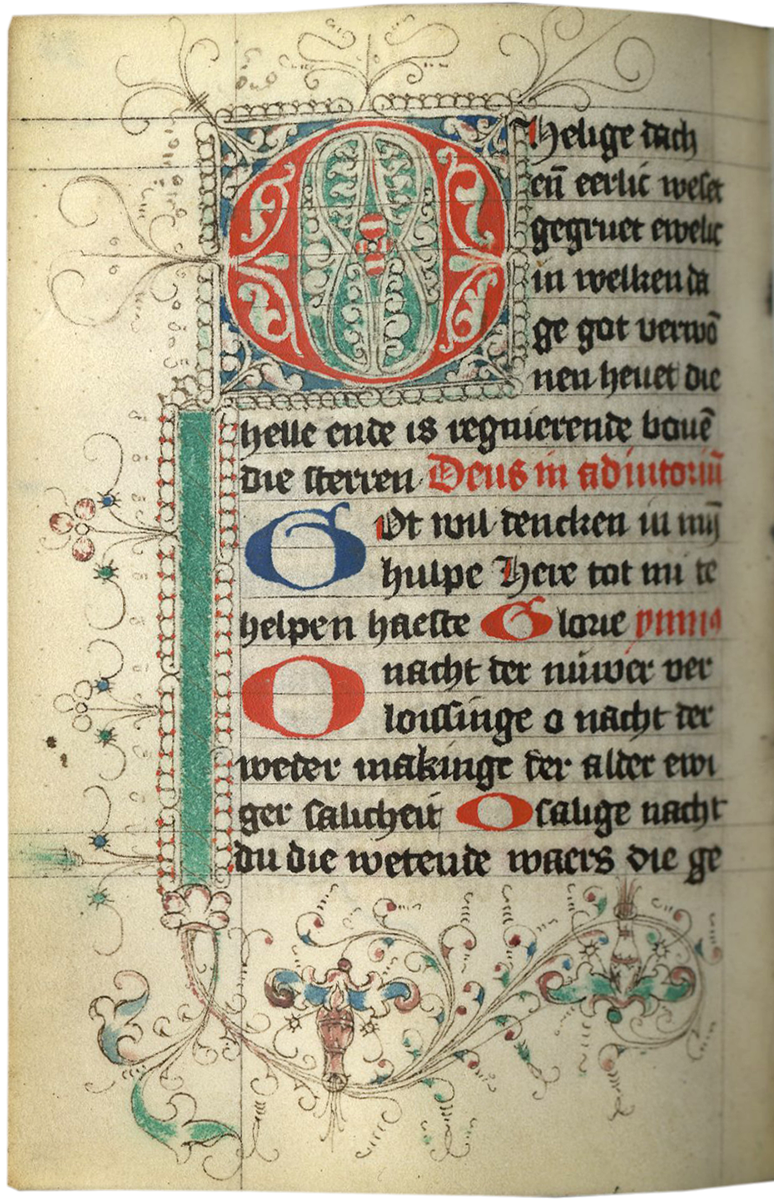 O helige dach
en̄ eerlic weset
gegruet ewelic
in welken da
ge got verwō
nen heuet die
helle ende is regnierende bouē
die sterren Deus in adiutoriū
Got wil dencken in mij
hulpe Here tot mi te
helpen haeste Glorie ymnꝰ
O nacht der nuwer ver
loissinge o nacht der
weder makinge der alder ewi
ger salicheit O salige nacht
du die wetende waers die ge